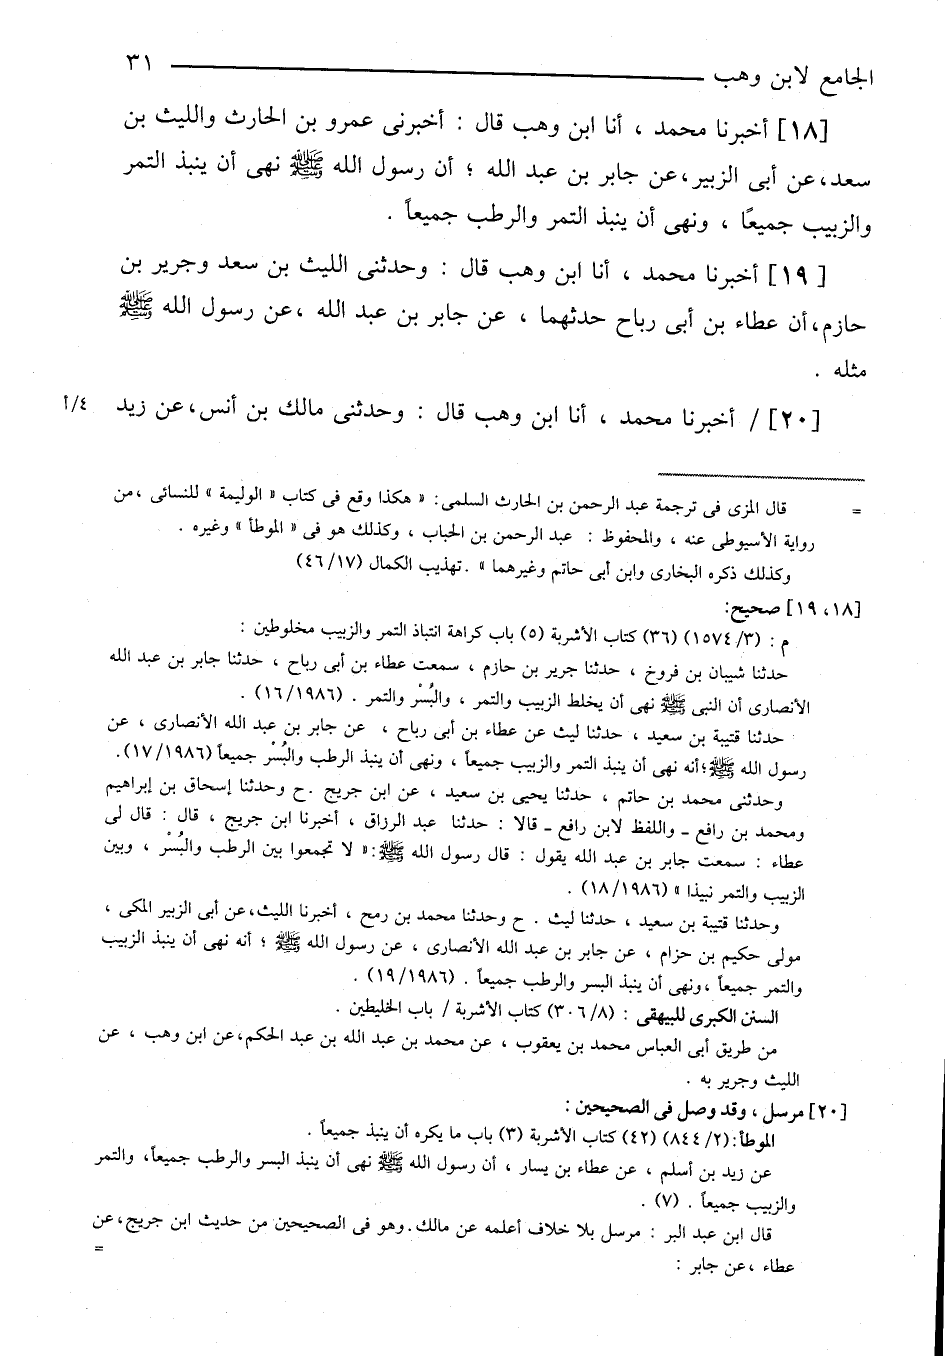 الجامع لابن وهب ـــــــــــــــــــــــــــــــــــــــــ ٣١
[١٨] أخبرنا محمد ، أنا ابن وهب قال : أخبرنى عمرو بن الحارث والليث بن
سعد،عن أبى الزبير،عن جابر بن عبد الله ؛ أن رسول الله ﷺ نهى أن ينبذ التمر
والزبيب جميعًا ، ونهى أن ينبذ التمر والرطب جميعاً .
[١٩] أخبرنا محمد ، أنا ابن وهب قال : وحدثنى الليث بن سعد وجرير بن
حازم،أن عطاء بن أبى رباح حدثهما ، عن جابر بن عبد الله ،عن رسول الله ﷺ
مثله .
[٢٠] / أخبرنا محمد ، أنا ابن وهب قال : وحدثنى مالك بن أنس،عن زيد ٤/أ
= قال المزى فى ترجمة عبد الرحمن بن الحارث السلمى: « هكذا وقع فى كتاب « الوليمة » للنسائى ،من
رواية الأسيوطى عنه ، والمحفوظ : عبد الرحمن بن الحباب ، وكذلك هو فى « الموطأ » وغيره .
وكذلك ذكره البخارى وابن أبى حاتم وغيرهما » .تهذيب الكمال (١٧/ ٤٦)
[١٨، ١٩] صحيح:
م : (٣/ ١٥٧٤) (٣٦) كتاب الأشربة (٥) باب كراهة انتباذ التمر والزبيب مخلوطين :
حدثنا شيبان بن فروخ ، حدثنا جرير بن حازم ، سمعت عطاء بن أبى رباح ، حدثنا جابر بن عبد الله
الأنصارى أن النبى ﷺ نهى أن يخلط الزبيب والتمر ، والبُسْر والتمر . (١٦/١٩٨٦) .
حدثنا قتيبة بن سعيد ، حدثنا ليث عن عطاء بن أبى رباح ، عن جابر بن عبد الله الأنصارى ، عن
رسول الله ﷺ؛أنه نهى أن ينبذ التمر والزبيب جميعاً ، ونهى أن ينبذ الرطب والبُسْر جميعاً (١٧/١٩٨٦).
وحدثنى محمد بن حاتم ، حدثنا يحيى بن سعيد ، عن ابن جريج .ح وحدثنا إسحاق بن إبراهيم
ومحمد بن رافع ـ واللفظ لابن رافع ـ قالا : حدثنا عبد الرزاق ، أخبرنا ابن جريج ، قال : قال لى
عطاء : سمعت جابر بن عبد الله يقول : قال رسول الله ﷺ:« لا تجمعوا بين الرطب والبُسْر ، وبين
الزبيب والتمر نبيذا » (١٨/١٩٨٦) .
وحدثنا قتيبة بن سعيد ، حدثنا ليث . ح وحدثنا محمد بن رمح ، أخبرنا الليث،عن أبى الزبير المكى ،
مولى حكيم بن حزام ، عن جابر بن عبد الله الأنصارى ، عن رسول الله ﷺ ؛ أنه نهى أن ينبذ الزبيب
والتمر جميعاً ،ونهى أن ينبذ البسر والرطب جميعاً . (١٩/١٩٨٦) .
السنن الكبرى للبيهقى : (٨/ ٣٠٦) كتاب الأشربة / باب الخليطين .
من طريق أبى العباس محمد بن يعقوب ، عن محمد بن عبد الله بن عبد الحكم،عن ابن وهب ، عن
الليث وجرير به .
[٢٠] مرسل ، وقد وصل فى الصحيحين :
الموطأ:(٢/ ٨٤٤) (٤٢) كتاب الأشربة (٣) باب ما يكره أن ينبذ جميعاً .
عن زيد بن أسلم ، عن عطاء بن يسار ، أن رسول الله ﷺ نهى أن ينبذ البسر والرطب جميعاً، والتمر
والزبيب جميعاً . (٧) .
قال ابن عبد البر : مرسل بلا خلاف أعلمه عن مالك.وهو فى الصحيحين من حديث ابن جريج،عن
عطاء ،عن جابر : =